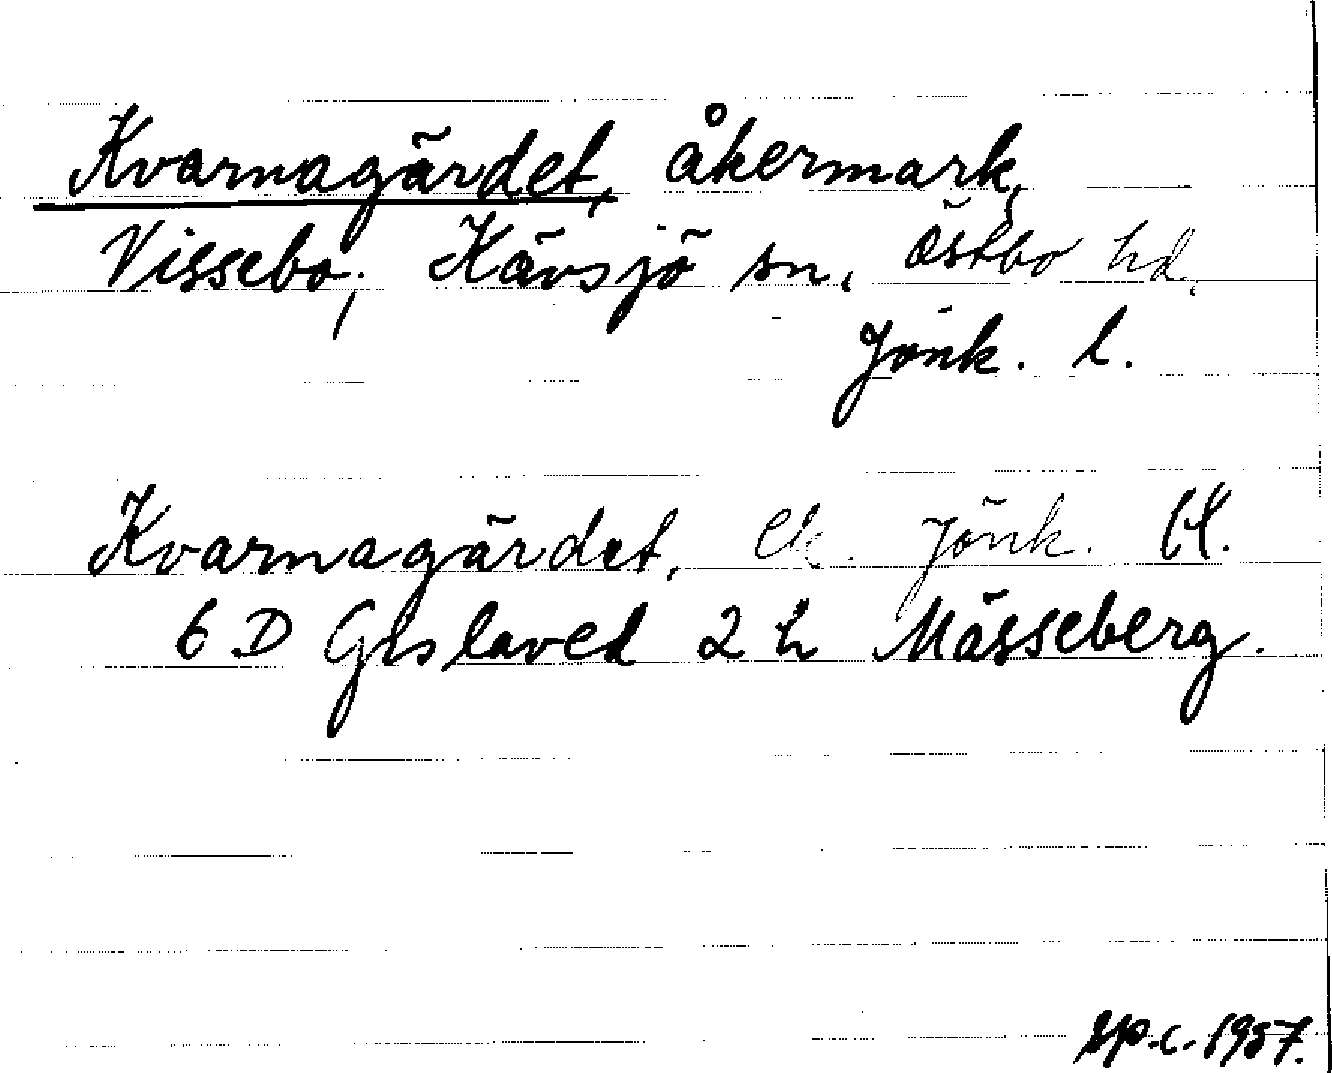 Kvarnagärdet, åkermark,
Vissebo, Kävsjö sn, Östbo hd,
Jönk. l.
Kvarnagärdet, Ek. Jönk. bl.
6 D Gislaved 2 h Mässeberg.
1957.